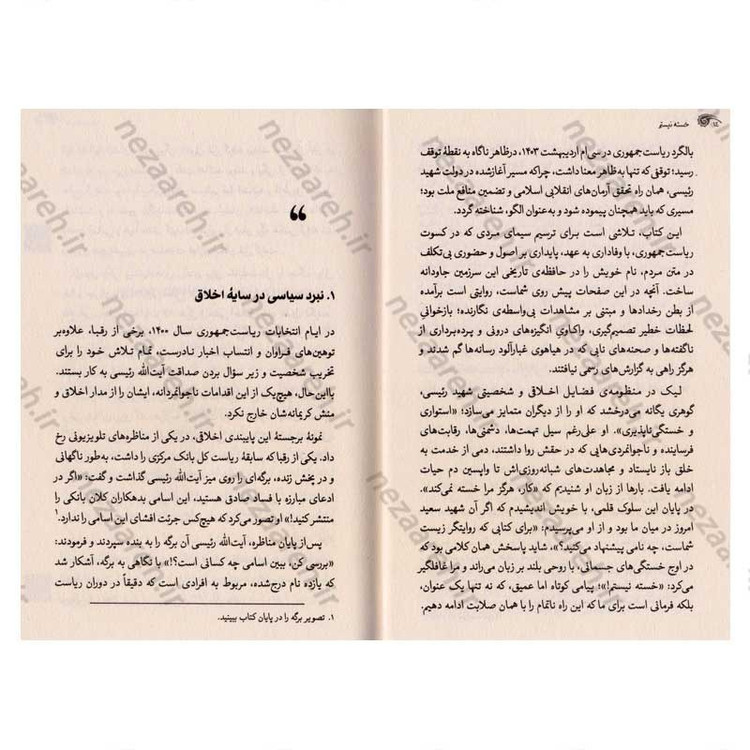 ۱۴ خسته نیستم
بالگرد ریاست‌جمهوری در سی‌اُم اردیبهشت ۱۴۰۳، درظاهر ناگاه به نقطهٔ توقف
رسید؛ توقفی که تنها به ظاهر معنا داشت، چراکه مسیر آغازشده در دولت شهید
رئیسی، همان راه تحقق آرمان‌های انقلابی اسلامی و تضمین منافع ملت بود؛
مسیری که باید همچنان پیموده شود و به‌عنوان الگو، شناخته گردد.
این کتاب، تلاشی است برای ترسیم سیمای مردی که در کسوت
ریاست‌جمهوری، با وفاداری به عهد، پایداری بر اصول و حضوری بی‌تکلف
در متن مردم، نام خویش را در حافظه‌ی تاریخی این سرزمین جاودانه
ساخت. آنچه در این صفحات پیش روی شماست، روایتی است برآمده
از بطن رخدادها و مبتنی بر مشاهدات بی‌واسطه‌ی نگارنده؛ بازخوانی
لحظات خطیر تصمیم‌گیری، واکاوی انگیزه‌های درونی و پرده‌برداری از
ناگفته‌ها و صحنه‌های نابی که در هیاهوی غبارآلود رسانه‌ها گم شدند و
هرگز راهی به گزارش‌های رسمی نیافتند.
لیک در منظومه‌ی فضایل اخلاقی و شخصیتی شهید رئیسی،
گوهری یگانه می‌درخشد که او را از دیگران متمایز می‌سازد: «استواری
و خستگی‌ناپذیری». او علی‌رغم سیل تهمت‌ها، دشمنی‌ها، رقابت‌های
فرساینده و ناجوانمردی‌هایی که در حقش روا داشتند، دمی از خدمت به
خلق باز نایستاد و مجاهدت‌های شبانه‌روزی‌اش تا واپسین دم حیات
ادامه یافت. بارها از زبان او شنیدیم که «کار، هرگز مرا خسته نمی‌کند».
در پایان این سلوک قلمی، با خویش اندیشیدم که اگر آن شهید سعید
امروز در میان ما بود و از او می‌پرسیدم: «برای کتابی که روایتگر زیست
شماست، چه نامی پیشنهاد می‌کنید؟»، شاید پاسخش همان کلامی بود که
در اوج خستگی‌های جسمانی، با روحی بلند بر زبان می‌راند و مرا غافلگیر
می‌کرد: «خسته نیستم!»؛ پیامی کوتاه اما عمیق، که نه تنها یک عنوان،
بلکه فرمانی است برای ما که این راه ناتمام را با همان صلابت ادامه دهیم.
❝
۱. نبرد سیاسی در سایهٔ اخلاق
در ایام انتخابات ریاست‌جمهوری سال ۱۴۰۰، برخی از رقبا، علاوه‌بر
توهین‌های فراوان و انتساب اخبار نادرست، تمام تلاش خود را برای
تخریب شخصیت و زیر سؤال بردن صداقت آیت‌الله رئیسی به کار بستند.
بااین‌حال، هیچ‌یک از این اقدامات ناجوانمردانه، ایشان را از مدار اخلاق و
منش کریمانه‌شان خارج نکرد.
نمونهٔ برجستهٔ این پایبندی اخلاقی، در یکی از مناظره‌های تلویزیونی رخ
داد. یکی از رقبا که سابقهٔ ریاست کل بانک مرکزی را داشت، به‌طور ناگهانی
و در پخش زنده، برگه‌ای را روی میز آیت‌الله رئیسی گذاشت و گفت: «اگر در
ادعای مبارزه با فساد صادق هستید، این اسامی بدهکاران کلان بانکی را
منتشر کنید!» او تصور می‌کرد که هیچ‌کس جرئت افشای این اسامی را ندارد.۱
پس‌از پایان مناظره، آیت‌الله رئیسی آن برگه را به بنده سپردند و فرمودند:
«بررسی کن، ببین اسامی چه کسانی است؟!» با نگاهی به برگه، آشکار شد
که یازده نام درج‌شده، مربوط به افرادی است که دقیقاً در دوران ریاست
۱. تصویر برگه را در پایان کتاب ببینید.
nezaareh.ir
nezaareh.ir
nezaareh.ir
nezaareh.ir
nezaareh.ir
nezaareh.ir